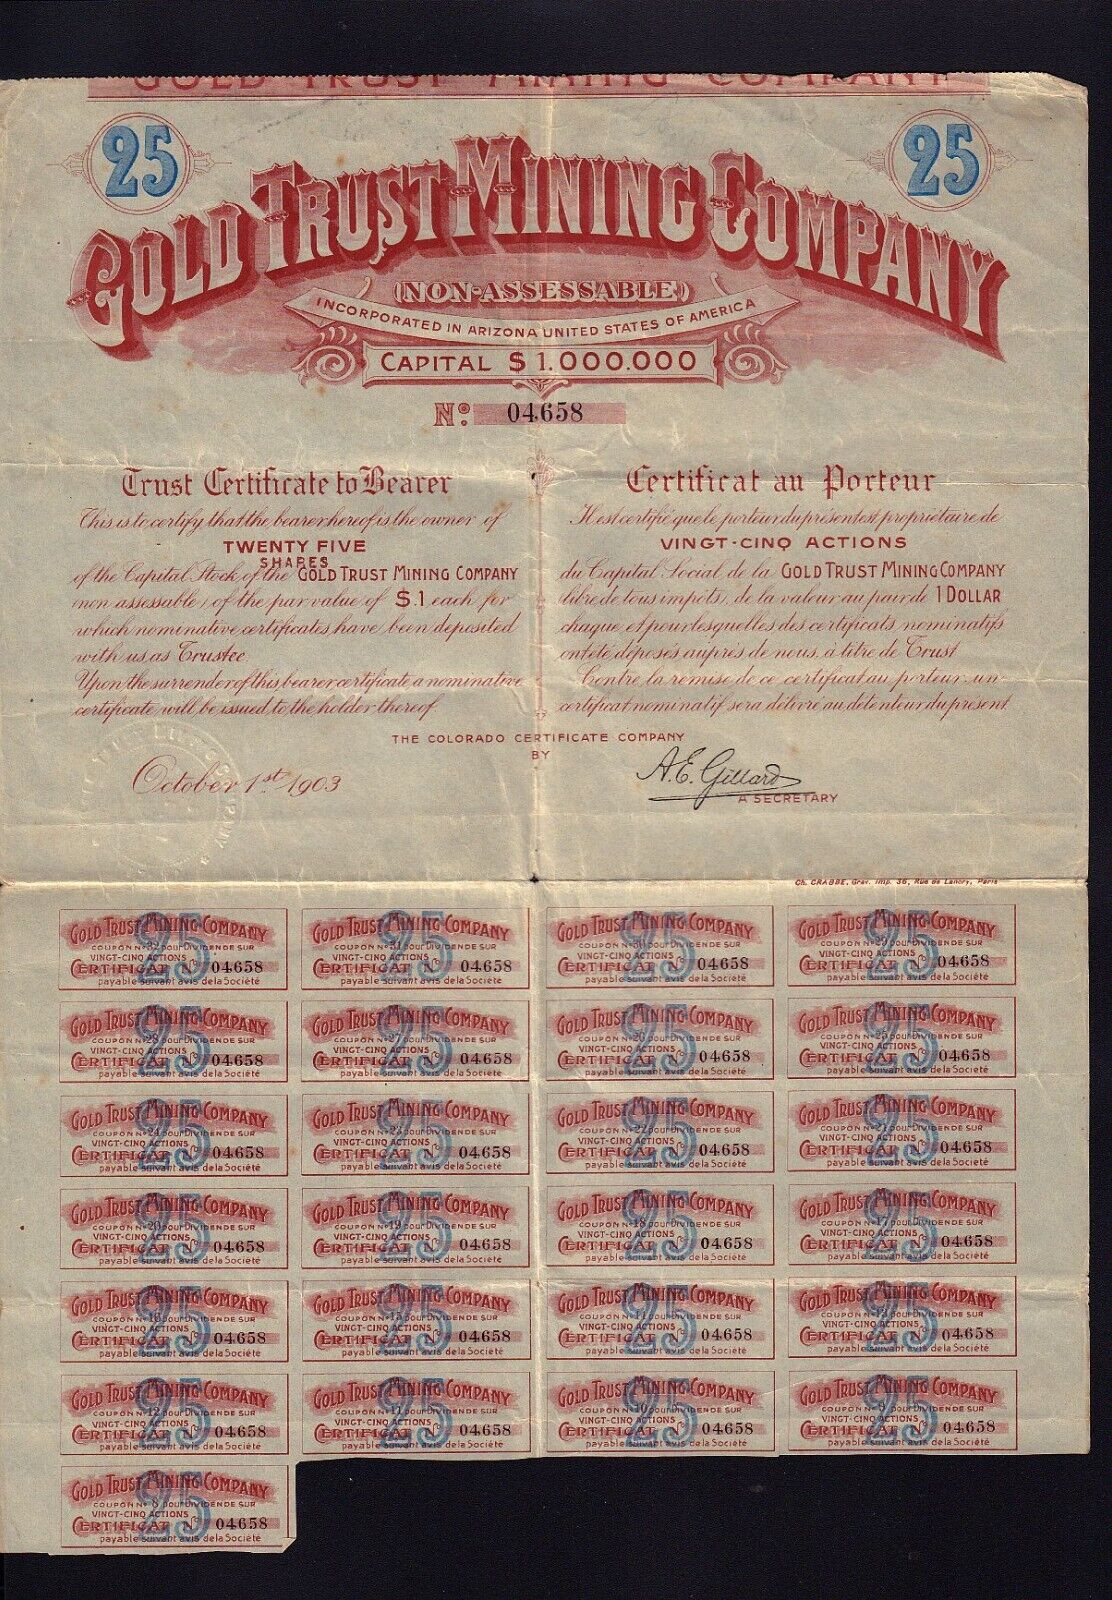 GOLD TRUST MINING COMPANY
25
25
GOLD TRUST MINING COMPANY
(NON-ASSESSABLE)
INCORPORATED IN ARIZONA UNITED STATES OF AMERICA
CAPITAL $ 1.000.000
No: 04658
Trust Certificate to Bearer
This is to certify that the bearer hereof is the owner of
TWENTY FIVE
SHARES
of the Capital Stock of the GOLD TRUST MINING COMPANY
non assessable, of the par value of $.1 each for
which nominative certificates have been deposited
with us as Trustee.
Upon the surrender of this bearer certificate a nominative
certificate will be issued to the holder thereof.
Certificat au Porteur
Il est certifié que le porteur du présent est propriétaire de
VINGT-CINQ ACTIONS
du Capital Social de la GOLD TRUST MINING COMPANY
libre de tous impôts, de la valeur au pair de 1 DOLLAR
chaque et pour lesquelles des certificats nominatifs
ont été déposés auprès de nous, à titre de Trust
Contre la remise de ce certificat au porteur, un
certificat nominatif sera délivré au détenteur du présent
THE COLORADO CERTIFICATE COMPANY
BY
October 1st 1903
A.E. Gillard
A SECRETARY
Ch. CRABBE, Grav. Imp. 36, Rue de Lancry, Paris
GOLD TRUST MINING COMPANY
25
COUPON No 32 pour DIVIDENDE SUR
VINGT-CINQ ACTIONS
CERTIFICAT No 04658
payable suivant avis de la Société
GOLD TRUST MINING COMPANY
25
COUPON No 31 pour DIVIDENDE SUR
VINGT-CINQ ACTIONS
CERTIFICAT No 04658
payable suivant avis de la Société
GOLD TRUST MINING COMPANY
25
COUPON No 30 pour DIVIDENDE SUR
VINGT-CINQ ACTIONS
CERTIFICAT No 04658
payable suivant avis de la Société
GOLD TRUST MINING COMPANY
25
COUPON No 29 pour DIVIDENDE SUR
VINGT-CINQ ACTIONS
CERTIFICAT No 04658
payable suivant avis de la Société
GOLD TRUST MINING COMPANY
25
COUPON No 28 pour DIVIDENDE SUR
VINGT-CINQ ACTIONS
CERTIFICAT No 04658
payable suivant avis de la Société
GOLD TRUST MINING COMPANY
25
COUPON No 27 pour DIVIDENDE SUR
VINGT-CINQ ACTIONS
CERTIFICAT No 04658
payable suivant avis de la Société
GOLD TRUST MINING COMPANY
25
COUPON No 26 pour DIVIDENDE SUR
VINGT-CINQ ACTIONS
CERTIFICAT No 04658
payable suivant avis de la Société
GOLD TRUST MINING COMPANY
25
COUPON No 25 pour DIVIDENDE SUR
VINGT-CINQ ACTIONS
CERTIFICAT No 04658
payable suivant avis de la Société
GOLD TRUST MINING COMPANY
25
COUPON No 24 pour DIVIDENDE SUR
VINGT-CINQ ACTIONS
CERTIFICAT No 04658
payable suivant avis de la Société
GOLD TRUST MINING COMPANY
25
COUPON No 23 pour DIVIDENDE SUR
VINGT-CINQ ACTIONS
CERTIFICAT No 04658
payable suivant avis de la Société
GOLD TRUST MINING COMPANY
25
COUPON No 22 pour DIVIDENDE SUR
VINGT-CINQ ACTIONS
CERTIFICAT No 04658
payable suivant avis de la Société
GOLD TRUST MINING COMPANY
25
COUPON No 21 pour DIVIDENDE SUR
VINGT-CINQ ACTIONS
CERTIFICAT No 04658
payable suivant avis de la Société
GOLD TRUST MINING COMPANY
25
COUPON No 20 pour DIVIDENDE SUR
VINGT-CINQ ACTIONS
CERTIFICAT No 04658
payable suivant avis de la Société
GOLD TRUST MINING COMPANY
25
COUPON No 19 pour DIVIDENDE SUR
VINGT-CINQ ACTIONS
CERTIFICAT No 04658
payable suivant avis de la Société
GOLD TRUST MINING COMPANY
25
COUPON No 18 pour DIVIDENDE SUR
VINGT-CINQ ACTIONS
CERTIFICAT No 04658
payable suivant avis de la Société
GOLD TRUST MINING COMPANY
25
COUPON No 17 pour DIVIDENDE SUR
VINGT-CINQ ACTIONS
CERTIFICAT No 04658
payable suivant avis de la Société
GOLD TRUST MINING COMPANY
25
COUPON No 16 pour DIVIDENDE SUR
VINGT-CINQ ACTIONS
CERTIFICAT No 04658
payable suivant avis de la Société
GOLD TRUST MINING COMPANY
25
COUPON No 15 pour DIVIDENDE SUR
VINGT-CINQ ACTIONS
CERTIFICAT No 04658
payable suivant avis de la Société
GOLD TRUST MINING COMPANY
25
COUPON No 14 pour DIVIDENDE SUR
VINGT-CINQ ACTIONS
CERTIFICAT No 04658
payable suivant avis de la Société
GOLD TRUST MINING COMPANY
25
COUPON No 13 pour DIVIDENDE SUR
VINGT-CINQ ACTIONS
CERTIFICAT No 04658
payable suivant avis de la Société
GOLD TRUST MINING COMPANY
25
COUPON No 12 pour DIVIDENDE SUR
VINGT-CINQ ACTIONS
CERTIFICAT No 04658
payable suivant avis de la Société
GOLD TRUST MINING COMPANY
25
COUPON No 11 pour DIVIDENDE SUR
VINGT-CINQ ACTIONS
CERTIFICAT No 04658
payable suivant avis de la Société
GOLD TRUST MINING COMPANY
25
COUPON No 10 pour DIVIDENDE SUR
VINGT-CINQ ACTIONS
CERTIFICAT No 04658
payable suivant avis de la Société
GOLD TRUST MINING COMPANY
25
COUPON No 9 pour DIVIDENDE SUR
VINGT-CINQ ACTIONS
CERTIFICAT No 04658
payable suivant avis de la Société
GOLD TRUST MINING COMPANY
25
COUPON No 8 pour DIVIDENDE SUR
VINGT-CINQ ACTIONS
CERTIFICAT No 04658
payable suivant avis de la Société